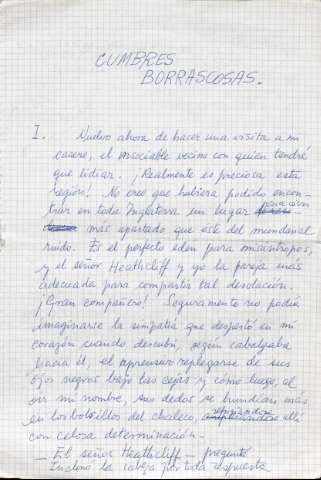 CUMBRES
BORRASCOSAS.
I. Vuelvo ahora de hacer una visita a mi
casero, el insociable vecino con quien tendré
que lidiar. ¡Realmente es preciosa esta
región! No creo que hubiera podido encon-
trar en toda Inglaterra un lugar
más apartado que éste del mundanal
ruido. Es el perfecto edén para misántropos,
y el señor Heathcliff y yo la pareja más
adecuada para compartir tal desolación.
¡Gran compañero! Seguramente no podía
imaginarse la simpatía que despertó en mi
corazón cuando descubrí, según cabalgaba
hacia él, el aprensivo replegarse de sus
ojos negros bajo las cejas y cómo luego, al
oír mi nombre, sus dedos se hundían más
en los bolsillos del chaleco, allí
con celosa determinación.
— El señor Heathcliff — pregunté
Inclinó la cabeza por toda respuesta